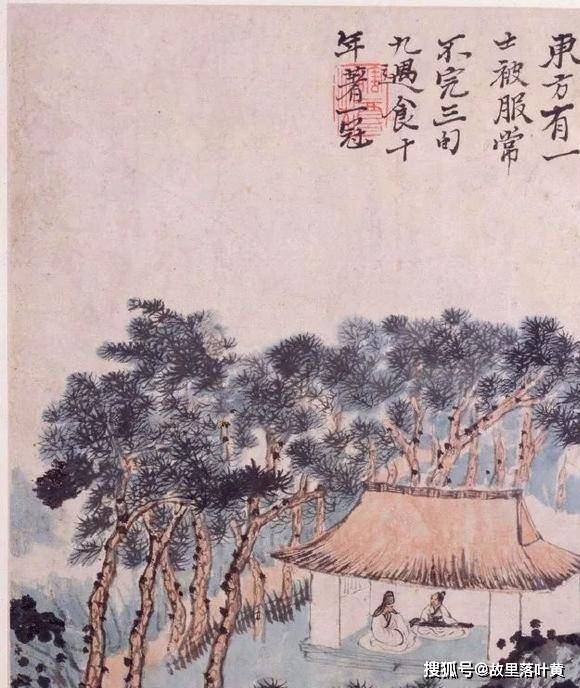 東方有一
士被服常
不完三旬
九遇食十
年著一冠
搜狐号@故里落叶黄